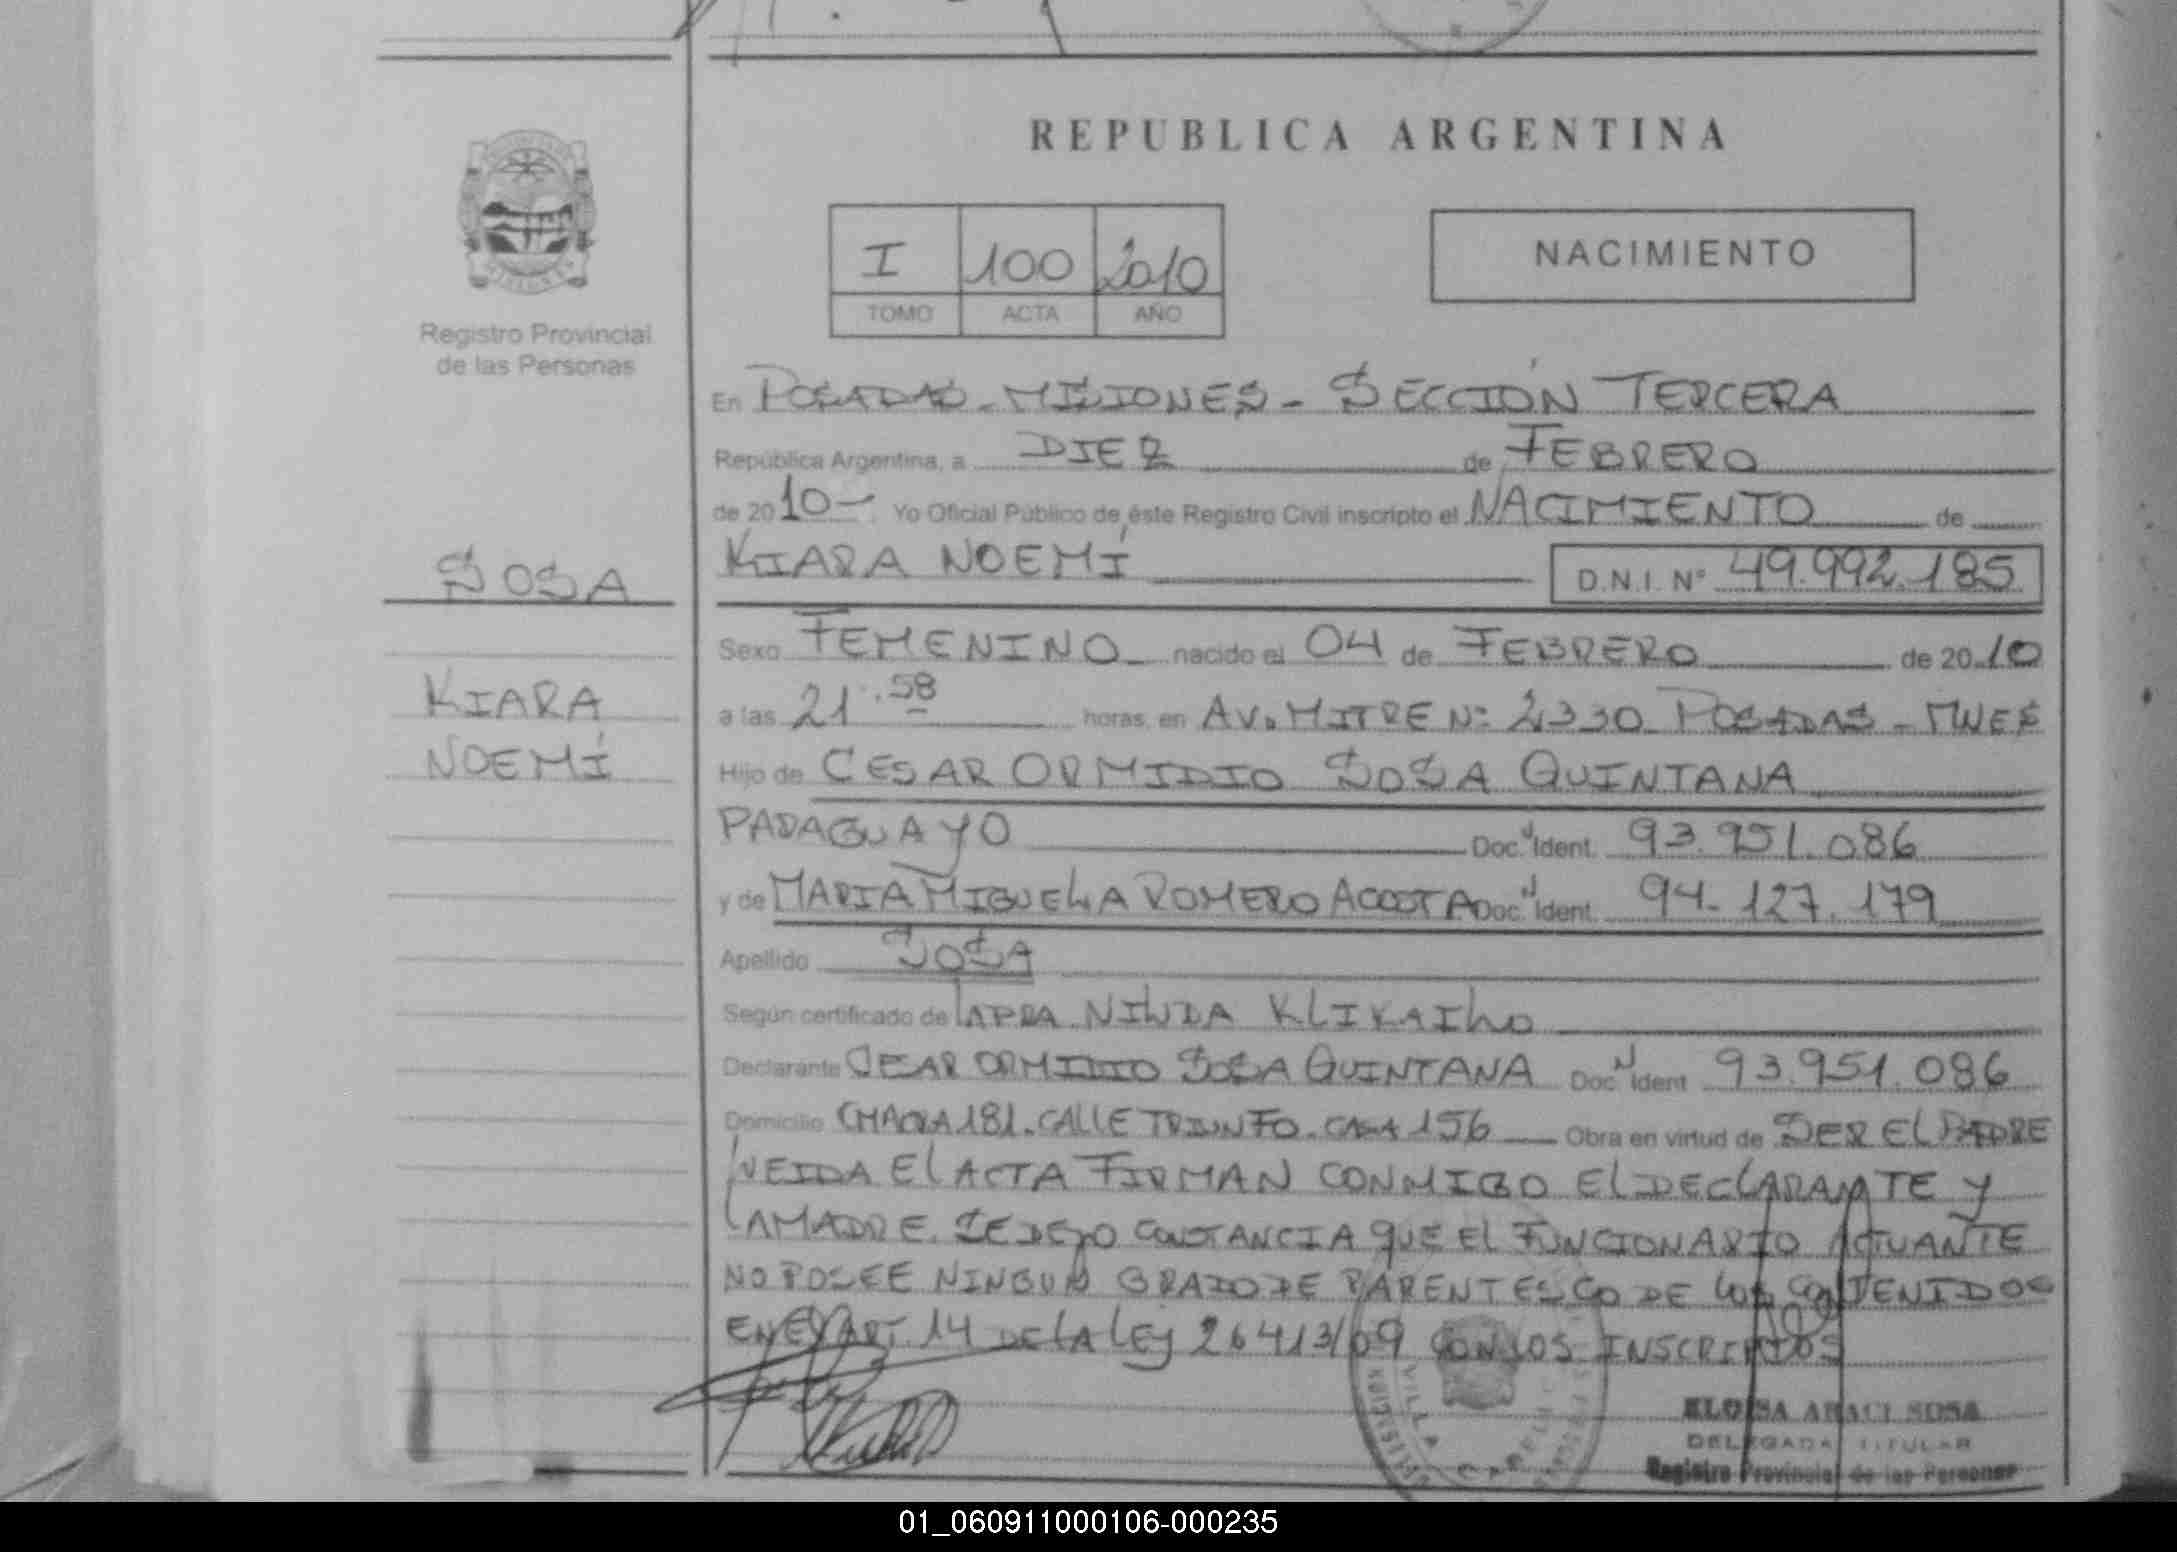 REPUBLICA ARGENTINA
I 100 2010
TOMO ACTA AÑO
NACIMIENTO
Registro Provincial
de las Personas
En POSADAS - MISIONES - SECCIÓN TERCERA
República Argentina, a DIEZ de FEBRERO
de 2010 - Yo Oficial Público de éste Registro Civil inscripto el NACIMIENTO de
KIARA NOEMÍ D.N.I. Nº 49.992.185
SOSA
KIARA
NOEMÍ
Sexo FEMENINO nacido el 04 de FEBRERO de 2010
a las 21.58 horas, en AV. MITRE Nº 2330 POSADAS - MNES
Hijo de CESAR ORMIDIO SOSA QUINTANA
PARAGUAYO Doc. Ident. 93.951.086
y de MARIA MIGUELA ROMERO ACOSTA Doc. Ident. 94.127.179
Apellido SOSA
Según certificado de NILDA
Declarante CESAR ORMIDIO SOSA QUINTANA Doc. Ident 93.951.086
Domicilio CHACRA 181. CALLE TRIUNFO. CASA 156 Obra en virtud de SER EL PADRE
LEIDA EL ACTA FIRMAN CONMIGO EL DECLARANTE Y
LA MADRE. SE DEJO CONSTANCIA QUE EL FUNCIONARIO ACTUANTE
NO POSEE NINGUN GRADO DE PARENTESCO DE LOS CONTENIDOS
EN EL ART. 14 DE LA LEY 26413/09 CON LOS INSCRIPTOS
ELOISA ARACI SOSA
DELEGADA TITULAR
Registro Provincial de las Personas
01_060911000106-000235